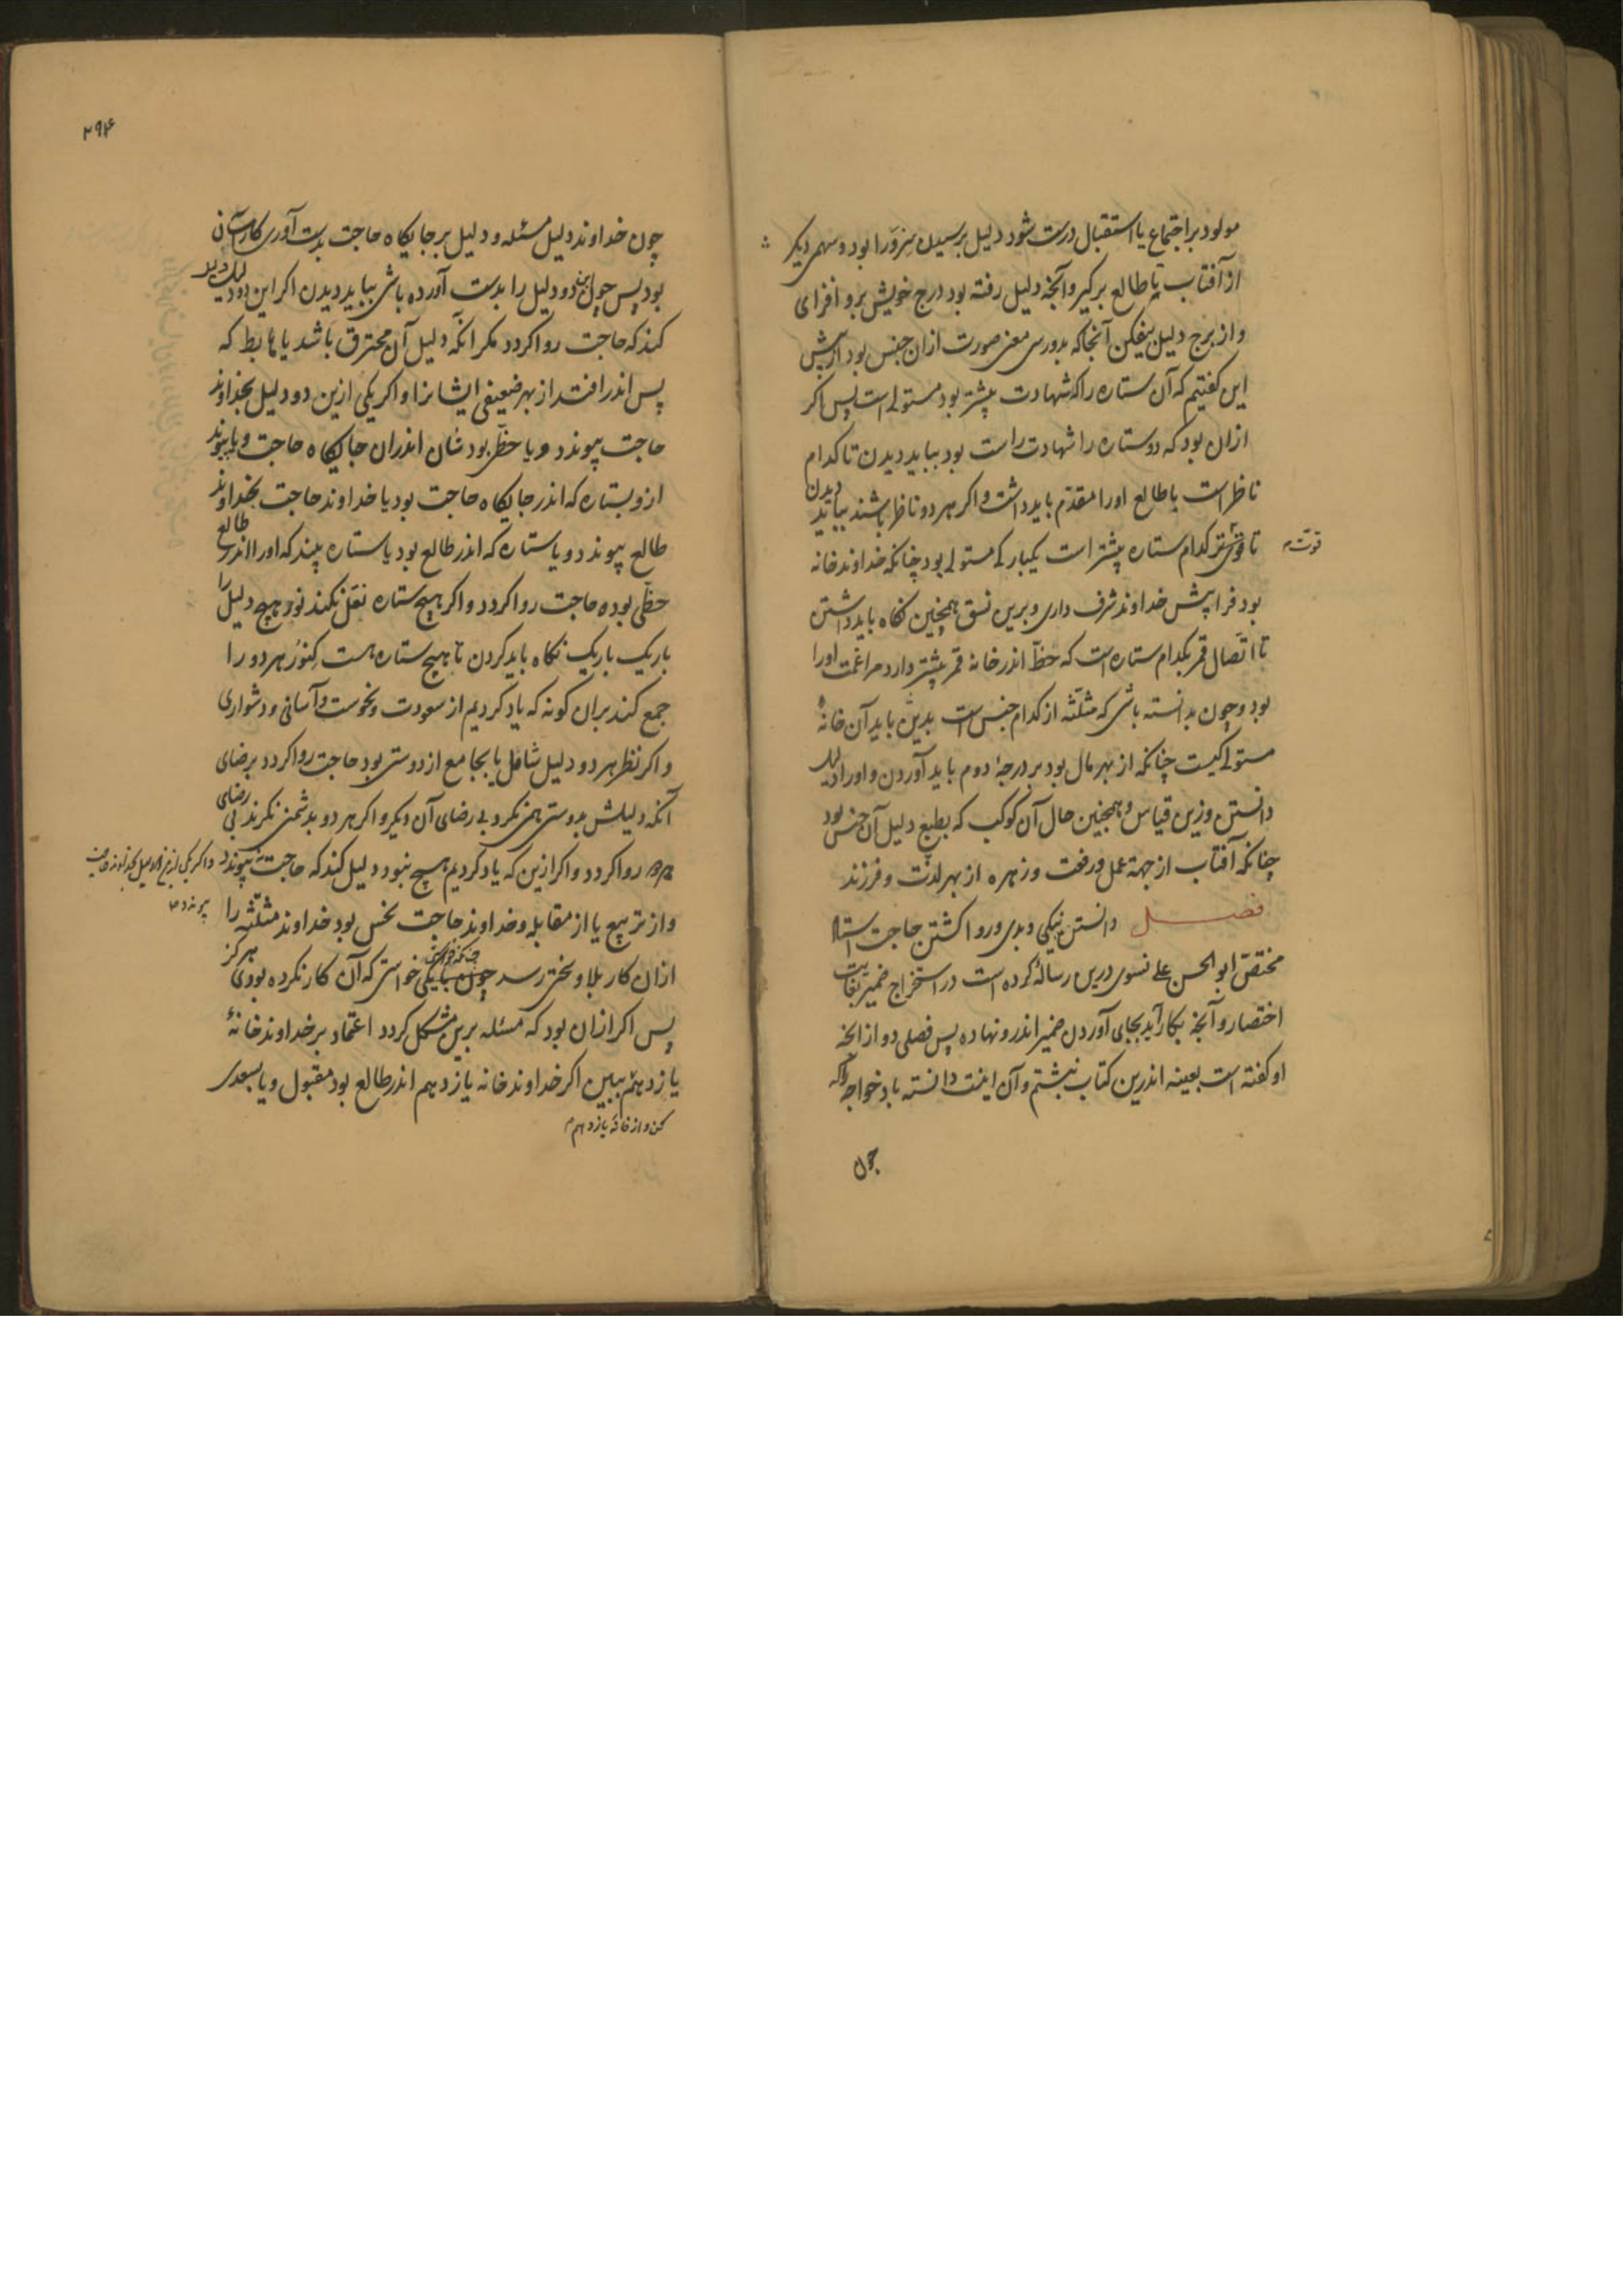 مولود بر اجتماع یا استقبال درست شود دلیل برسیدن سزورا بود و سهمی دیکر
از آفتاب تا طالع برکیر و آنچه دلیل رفته بود درج خویش برو افزای
و از برج دلیل بیفکن آنجا که بدو رسی معنی صورت ازان جنس بود از پیش
این کفتیم که آن ستاره را که شهادت بیشتر بود مستولی است پس اکر
ازان بود که دو ستاره را شهادت راست بود بباید دیدن تا کدام
ناظر است با طالع اورا مقدّم باید داشت و اکر هر دو ناظر باشند بباید دیدن
تا قوی‌تر کدام ستاره بیشتر است یکبارکی مستولی بود چنانکه خداوند خانه
قوّت
بود فرا پیش خداوند شرف داری و برین نسق همچنین نکاه باید داشتن
تا اتّصال قمر بکدام ستاره است که حظّ اندر خانه قمر بیشتر دارد مراغمت اورا
بود و چون بدانسته باشی که مثلّثه از کدام جنس است بدین باید آن خانهٔ
مستولی کیست چنانکه از بهر مال بود بر درجهٔ دوم باید آوردن و اورا دلیل
دانستن وزین قیاس و همچنین حال آن کوکب که بطبع دلیل آن جنس بود
چنانکه آفتاب از جهة عمل و رفعت و زهره از بهر لذّت و فرزند
فصل دانستن نیکی و بدی و روا کشتن حاجت استاد
مختصّ ابو الحسن علی نسوی درین رسالهٔ کرده است در استخراج ضمیر بغایت
اختصار و آنچه بکار آید بجای آوردن ضمیر اندرو نهاده پس فصلی دو از آنچه
او کفته است بعینه اندرین کتاب نبشتم و آن اینست دانسته باد خواجه را که
چون
۲۹۴
چون خداوند دلیل مسئله و دلیل بر جایکاه حاجت بدست آوری کار آسان
بود پس چون این دو دلیل را بدست آورده باشی بباید دیدن اکر این دو دلیل دلیل
کند که حاجت روا کردد مکر آنکه دلیل آن محترق باشد یا هابط که
پس اندر افتد از بهر ضعیفی ایشانرا و اکر یکی ازین دو دلیل بخداوند
حاجت پیوندد و یا حظّی بود شان اندران جایکاه حاجت و یا پیوند
ازو بستاره که اندر جایکاه حاجت بود یا خداوند حاجت بخداوند
طالع پیوندد و یا ستاره که اندر طالع بود یا ستاره بیند که اورا اندر طالع
حظّی بوده حاجت روا کردد و اکر هیچ ستاره نقل نکند نور هیچ دلیل را
باریک باریک نکاه باید کردن تا هیچ ستاره هست کنور هر دو را
جمع کند بران کونه که یاد کردیم از سعودت و نحوست و آسانی و دشواری
و اکر نظر هر دو دلیل شاقل یا بجامع از دوستی بود حاجت روا کردد برضای
آنکه دلیلش بدوستی همی نکرد بی رضای آن دیکر و اکر هر دو بدشمنی نکرند بی رضای
روا کردد و اکر ازین که یاد کردیم هیچ نبود دلیل کند که حاجت نپیوندد
و اکر یکی ازین دو دلیل بخداوند حاجت
پیوندد
و از تربیع یا از مقابله و خداوند حاجت نحس بود خداوند مثلّثه را
ازان کار بلا و سختی رسد چون بیکی خواستی که آن کار نکرده بودی هرکز
پس اکر ازان بود که مسئله برین مشکل کردد اعتماد بر خداوند خانهٔ
یازدهم ببین اکر خداوند خانه یازدهم اندر طالع بود مقبول و یا بسعدی
کن و از خانهٔ یازدهم